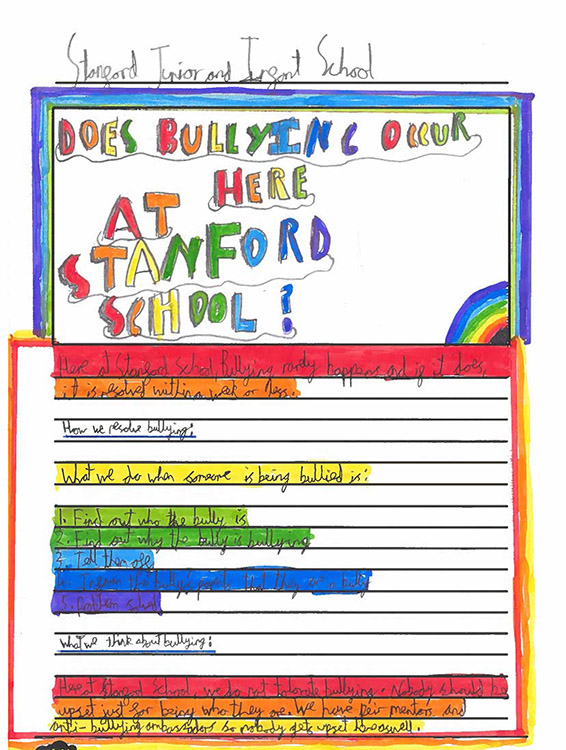 Stanford Junior and Infant School
DOES BULLYING OCCUR
HERE
AT
STANFORD
SCHOOL ?
Here at Stanford School, Bullying rarely happens and if it does,
it is resolved within a week or less.
How we resolve bullying:
What we do when someone is being bullied is:
1. Find out who the bully is
2. Find out why the bully is bullying
3. Tell them off
4. Inform the bully's parents that they are a bully
5. Problem solved
What we think about bullying:
Here at Stanford School, we do not tolerate bullying. Nobody should be
upset just for being who they are. We have Peir mentors and
anti-bullying ambassadors so nobody gets upset